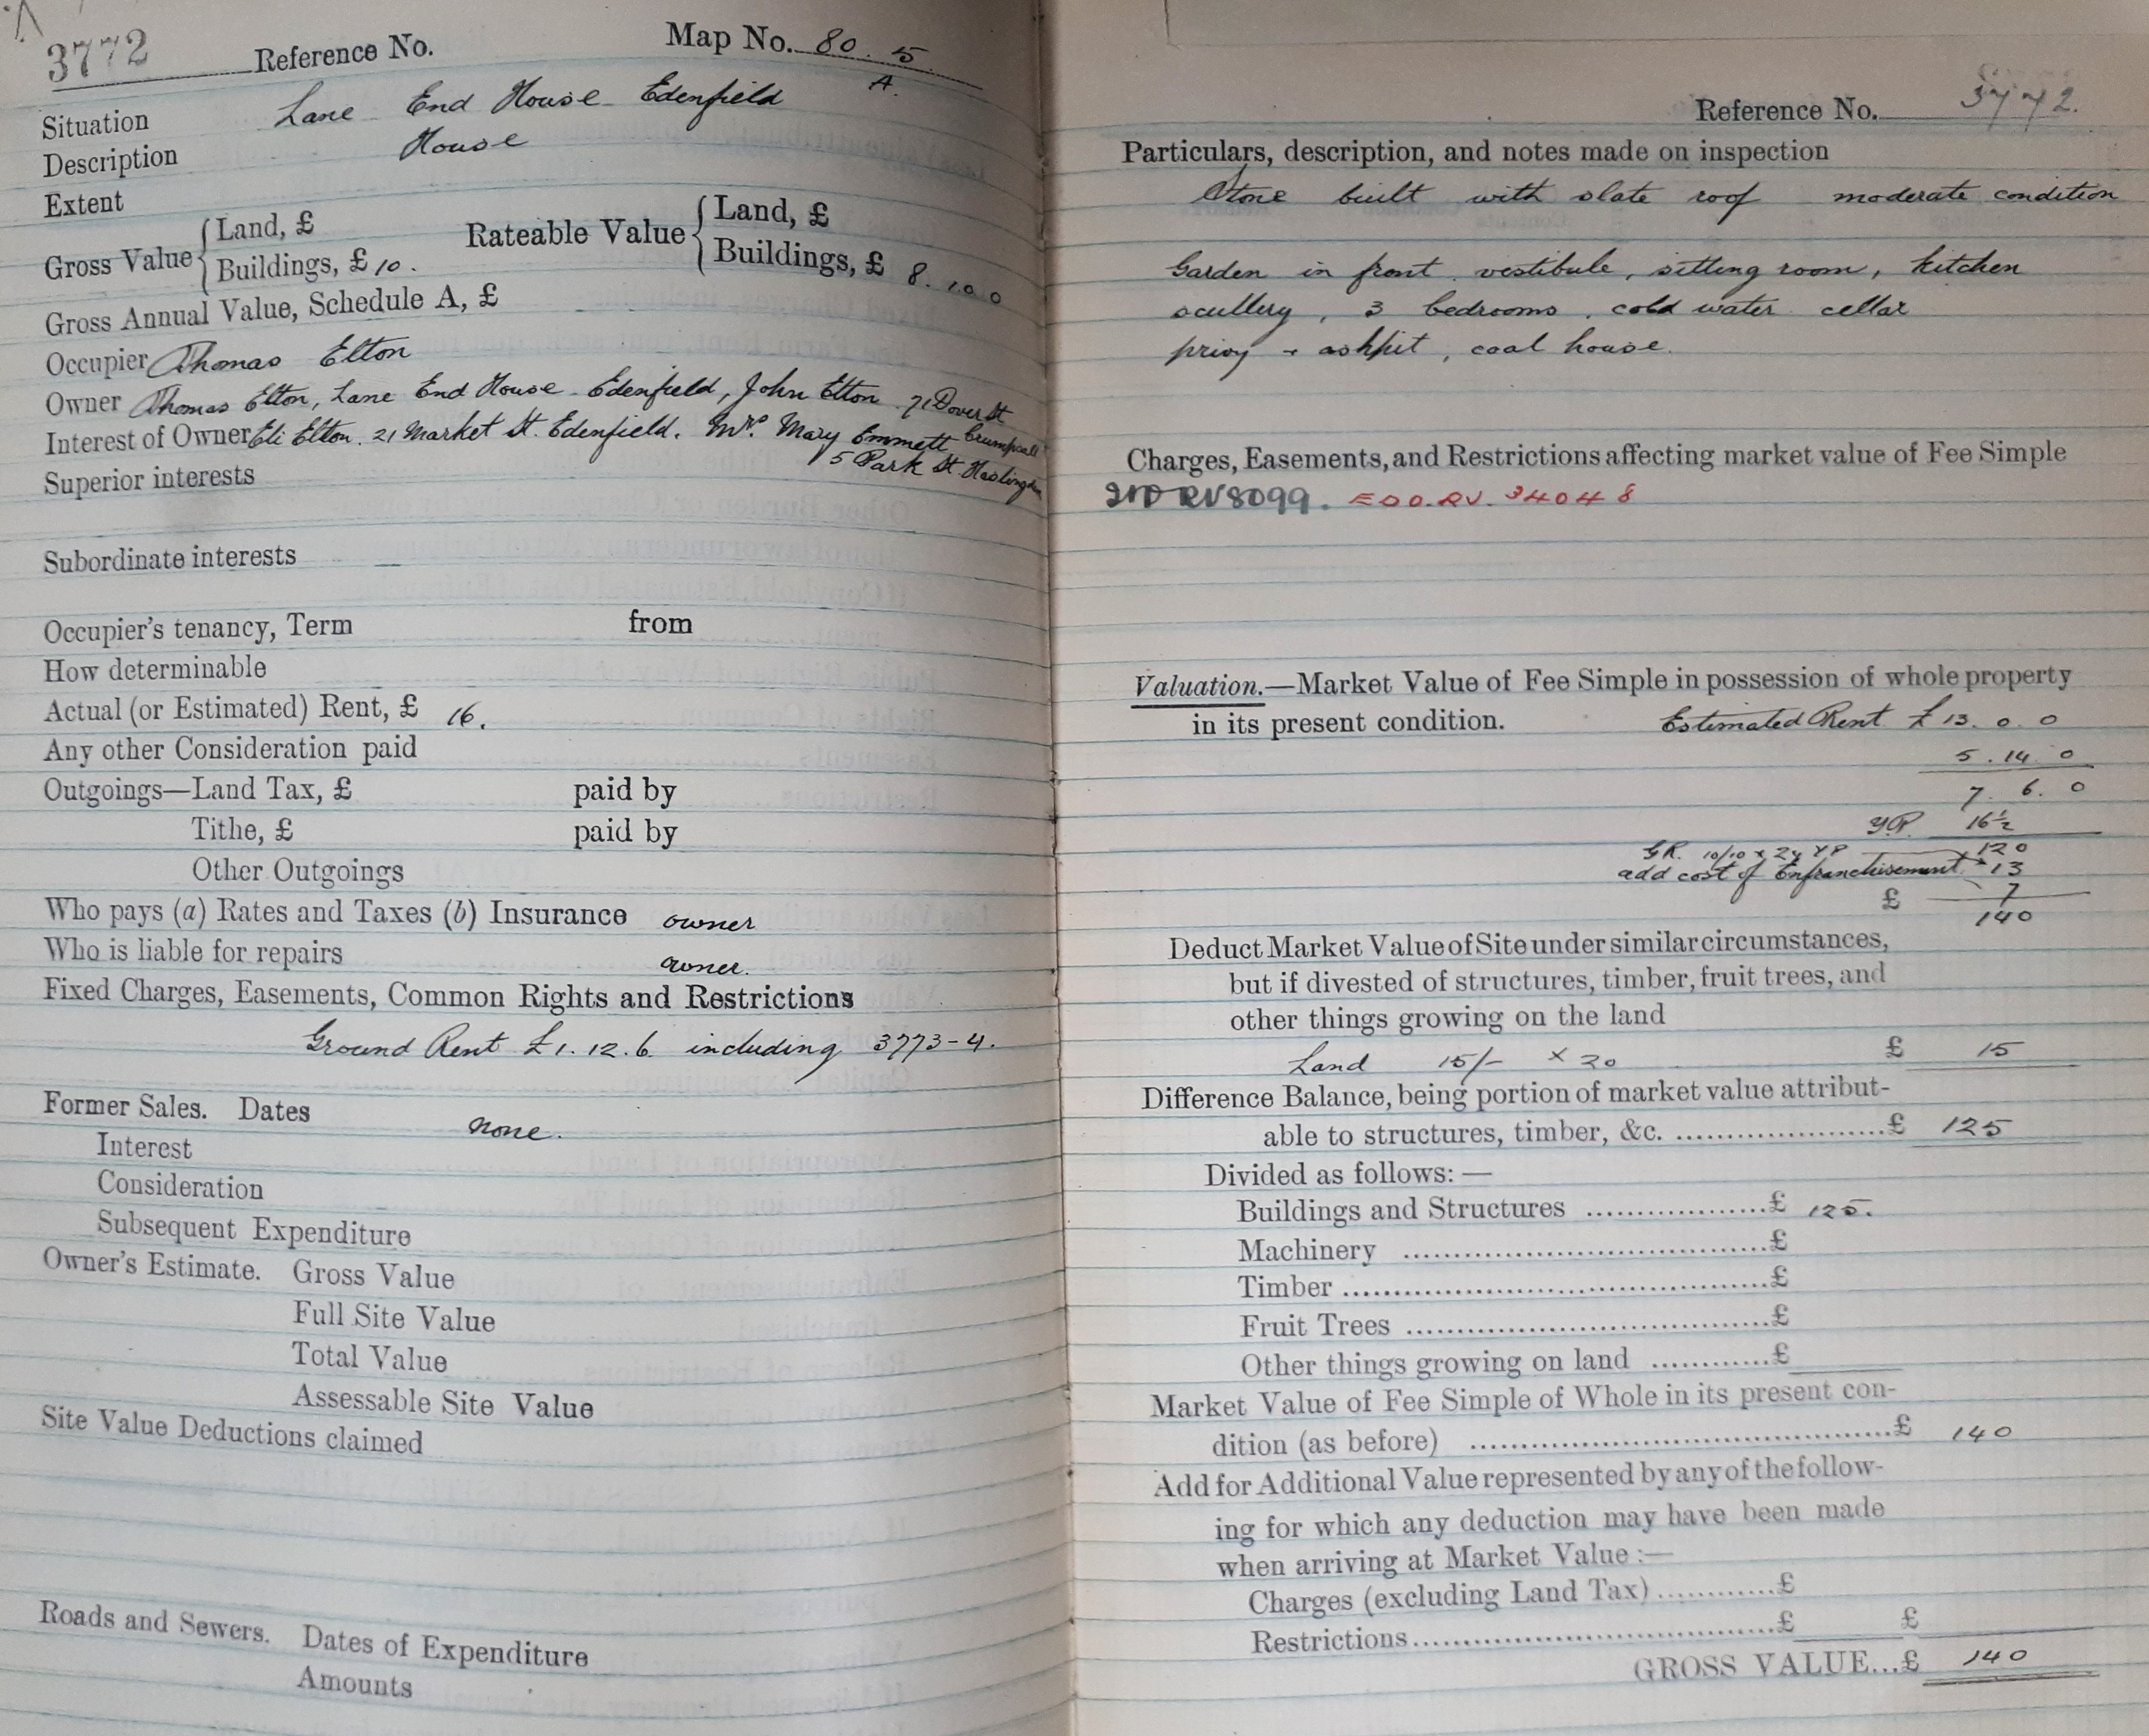 3772 Reference No. Map No. 80. 5
A.
Situation Lane End House Edenfield
Description House
Extent
Gross Value { Land, £ Rateable Value { Land, £
Buildings, £ 10. Buildings, £ 8. 10. 0
Gross Annual Value, Schedule A, £
Occupier Thomas Elton
Owner Thomas Elton, Lane End House Edenfield, John Elton 71 Dover St
Crumpsall
Interest of Owner Eli Elton. 21 Market St. Edenfield. Mrs. Mary Emmett
5 Park St. Haslingden
Superior interests
Subordinate interests
Occupier's tenancy, Term from
How determinable
Actual (or Estimated) Rent, £ 16.
Any other Consideration paid
Outgoings—Land Tax, £ paid by
Tithe, £ paid by
Other Outgoings
Who pays (a) Rates and Taxes (b) Insurance owner
Who is liable for repairs owner.
Fixed Charges, Easements, Common Rights and Restrictions
Ground Rent £1. 12. 6 including 3773-4.
Former Sales. Dates none.
Interest
Consideration
Subsequent Expenditure
Owner's Estimate. Gross Value
Full Site Value
Total Value
Assessable Site Value
Site Value Deductions claimed
Roads and Sewers. Dates of Expenditure
Amounts
Reference No. 3772.
Particulars, description, and notes made on inspection
Stone built with slate roof moderate condition
Garden in front. vestibule, sitting room, kitchen
scullery, 3 bedrooms. cold water cellar
privy + ashpit, coal house.
Charges, Easements, and Restrictions affecting market value of Fee Simple
RV8099. EDO.RV. 34048
Valuation.—Market Value of Fee Simple in possession of whole property
in its present condition. Estimated Rent £13. 0. 0
5. 14. 0
7. 6. 0
YP. 16½
GR. 10/10 x 24 YP 120
add cost of Enfranchisement 13
7
£ 140
Deduct Market Value of Site under similar circumstances,
but if divested of structures, timber, fruit trees, and
other things growing on the land
Land 15/- x 20 £ 15
Difference Balance, being portion of market value attribut-
able to structures, timber, &c. ....................£ 125
Divided as follows: —
Buildings and Structures ..................£ 125.
Machinery .....................................£
Timber ...........................................£
Fruit Trees ....................................£
Other things growing on land ............£
Market Value of Fee Simple of Whole in its present con-
dition (as before) ...........................................£ 140
Add for Additional Value represented by any of the follow-
ing for which any deduction may have been made
when arriving at Market Value :—
Charges (excluding Land Tax) ............£
Restrictions.....................................£ £
GROSS VALUE...£ 140